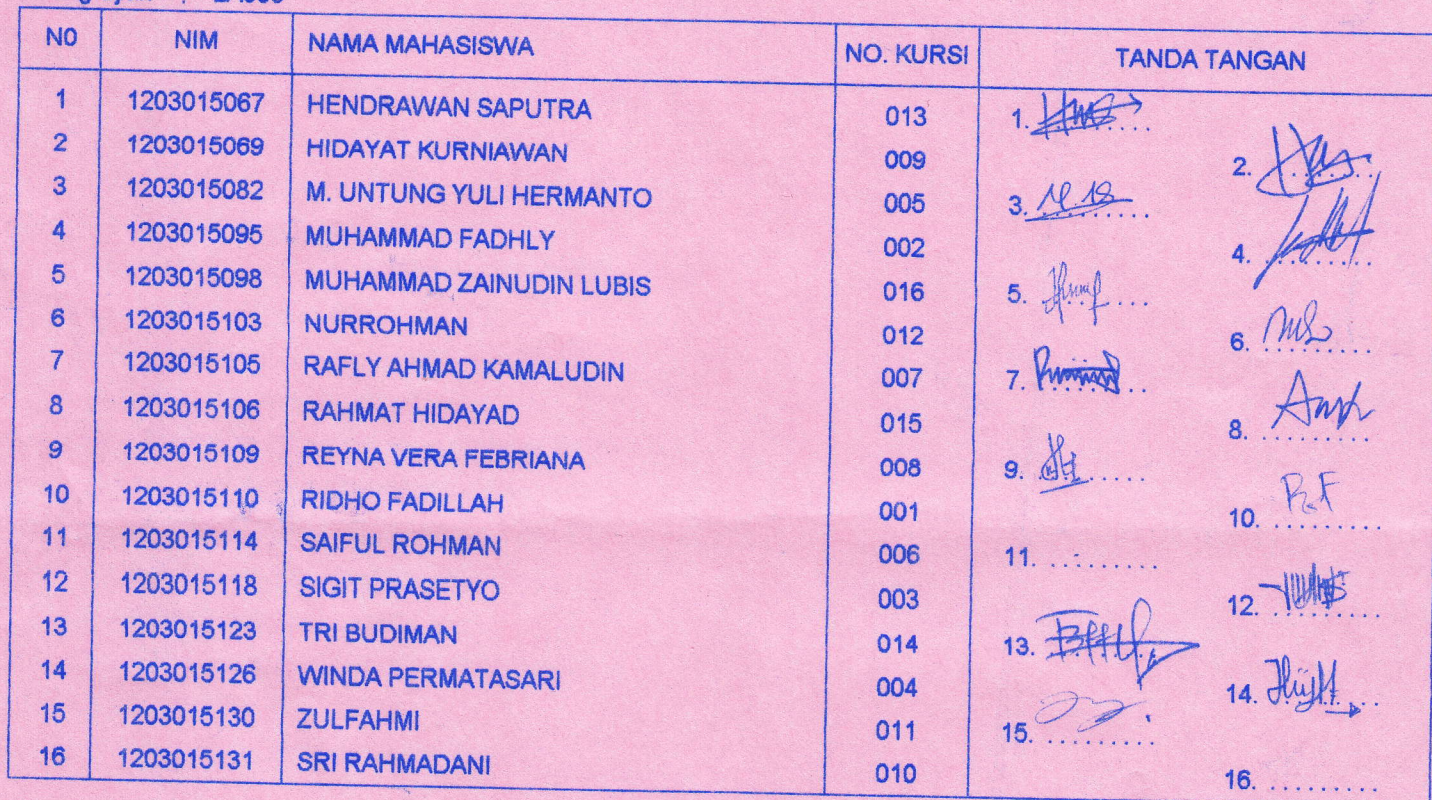 N0 NIM NAMA MAHASISWA NO. KURSI TANDA TANGAN
1 1203015067 HENDRAWAN SAPUTRA 013 1. ........
2 1203015069 HIDAYAT KURNIAWAN 009 2. ........
3 1203015082 M. UNTUNG YULI HERMANTO 005 3. ........
4 1203015095 MUHAMMAD FADHLY 002 4. ........
5 1203015098 MUHAMMAD ZAINUDIN LUBIS 016 5. ........
6 1203015103 NURROHMAN 012 6. ........
7 1203015105 RAFLY AHMAD KAMALUDIN 007 7. ........
8 1203015106 RAHMAT HIDAYAD 015 8. ........
9 1203015109 REYNA VERA FEBRIANA 008 9. ........
10 1203015110 RIDHO FADILLAH 001 10. ........
11 1203015114 SAIFUL ROHMAN 006 11. ........
12 1203015118 SIGIT PRASETYO 003 12. ........
13 1203015123 TRI BUDIMAN 014 13. ........
14 1203015126 WINDA PERMATASARI 004 14. ........
15 1203015130 ZULFAHMI 011 15. ........
16 1203015131 SRI RAHMADANI 010 16. ........